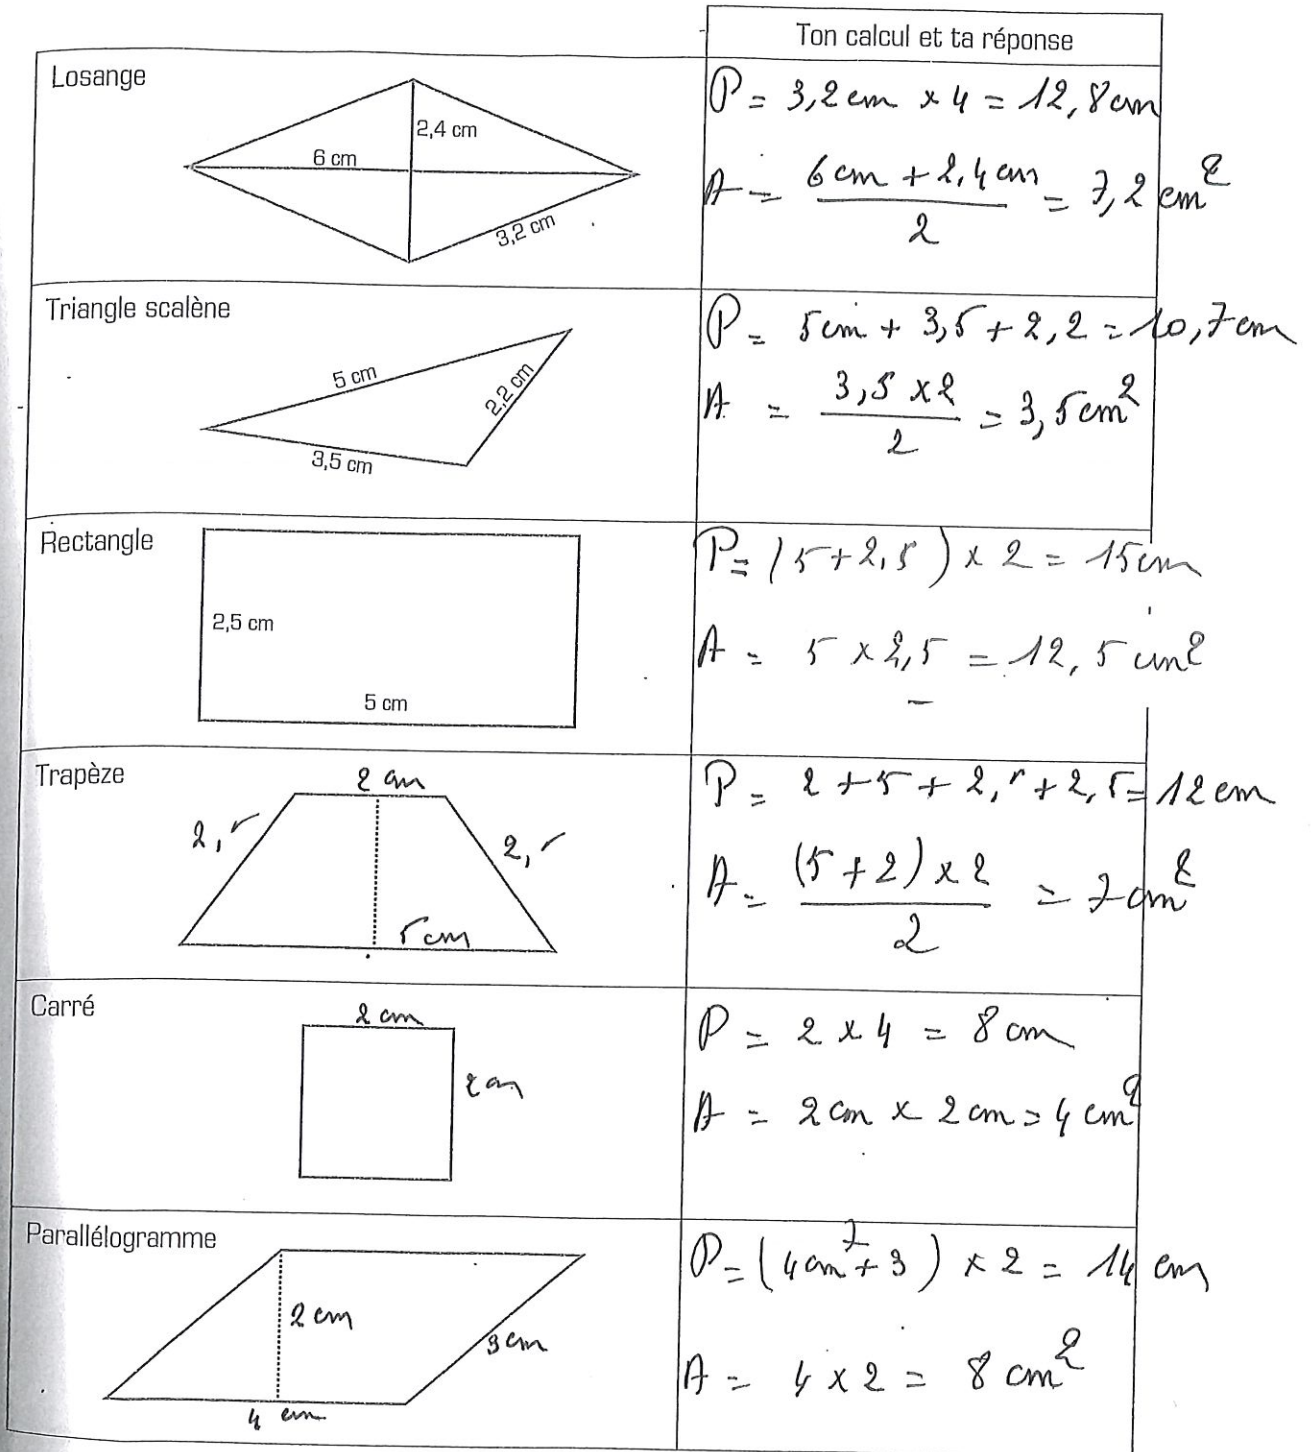 Ton calcul et ta réponse
Losange
2,4 cm
6 cm
3,2 cm
P = 3,2 cm × 4 = 12,8 cm
A = 6 cm + 2,4 cm / 2 = 7,2 cm²
Triangle scalène
5 cm
2,2 cm
3,5 cm
P = 5 cm + 3,5 + 2,2 = 10,7 cm
A = 3,5 × 2 / 2 = 3,5 cm²
Rectangle
2,5 cm
5 cm
P = (5 + 2,5) × 2 = 15 cm
A = 5 × 2,5 = 12,5 cm²
Trapèze
2 cm
2,5
2,5
5 cm
P = 2 + 5 + 2,5 + 2,5 = 12 cm
A = (5 + 2) × 2 / 2 = 7 cm²
Carré
2 cm
2 cm
P = 2 × 4 = 8 cm
A = 2 cm × 2 cm = 4 cm²
Parallélogramme
2 cm
3 cm
4 cm
7
P = (4 cm + 3) × 2 = 14 cm
A = 4 × 2 = 8 cm²